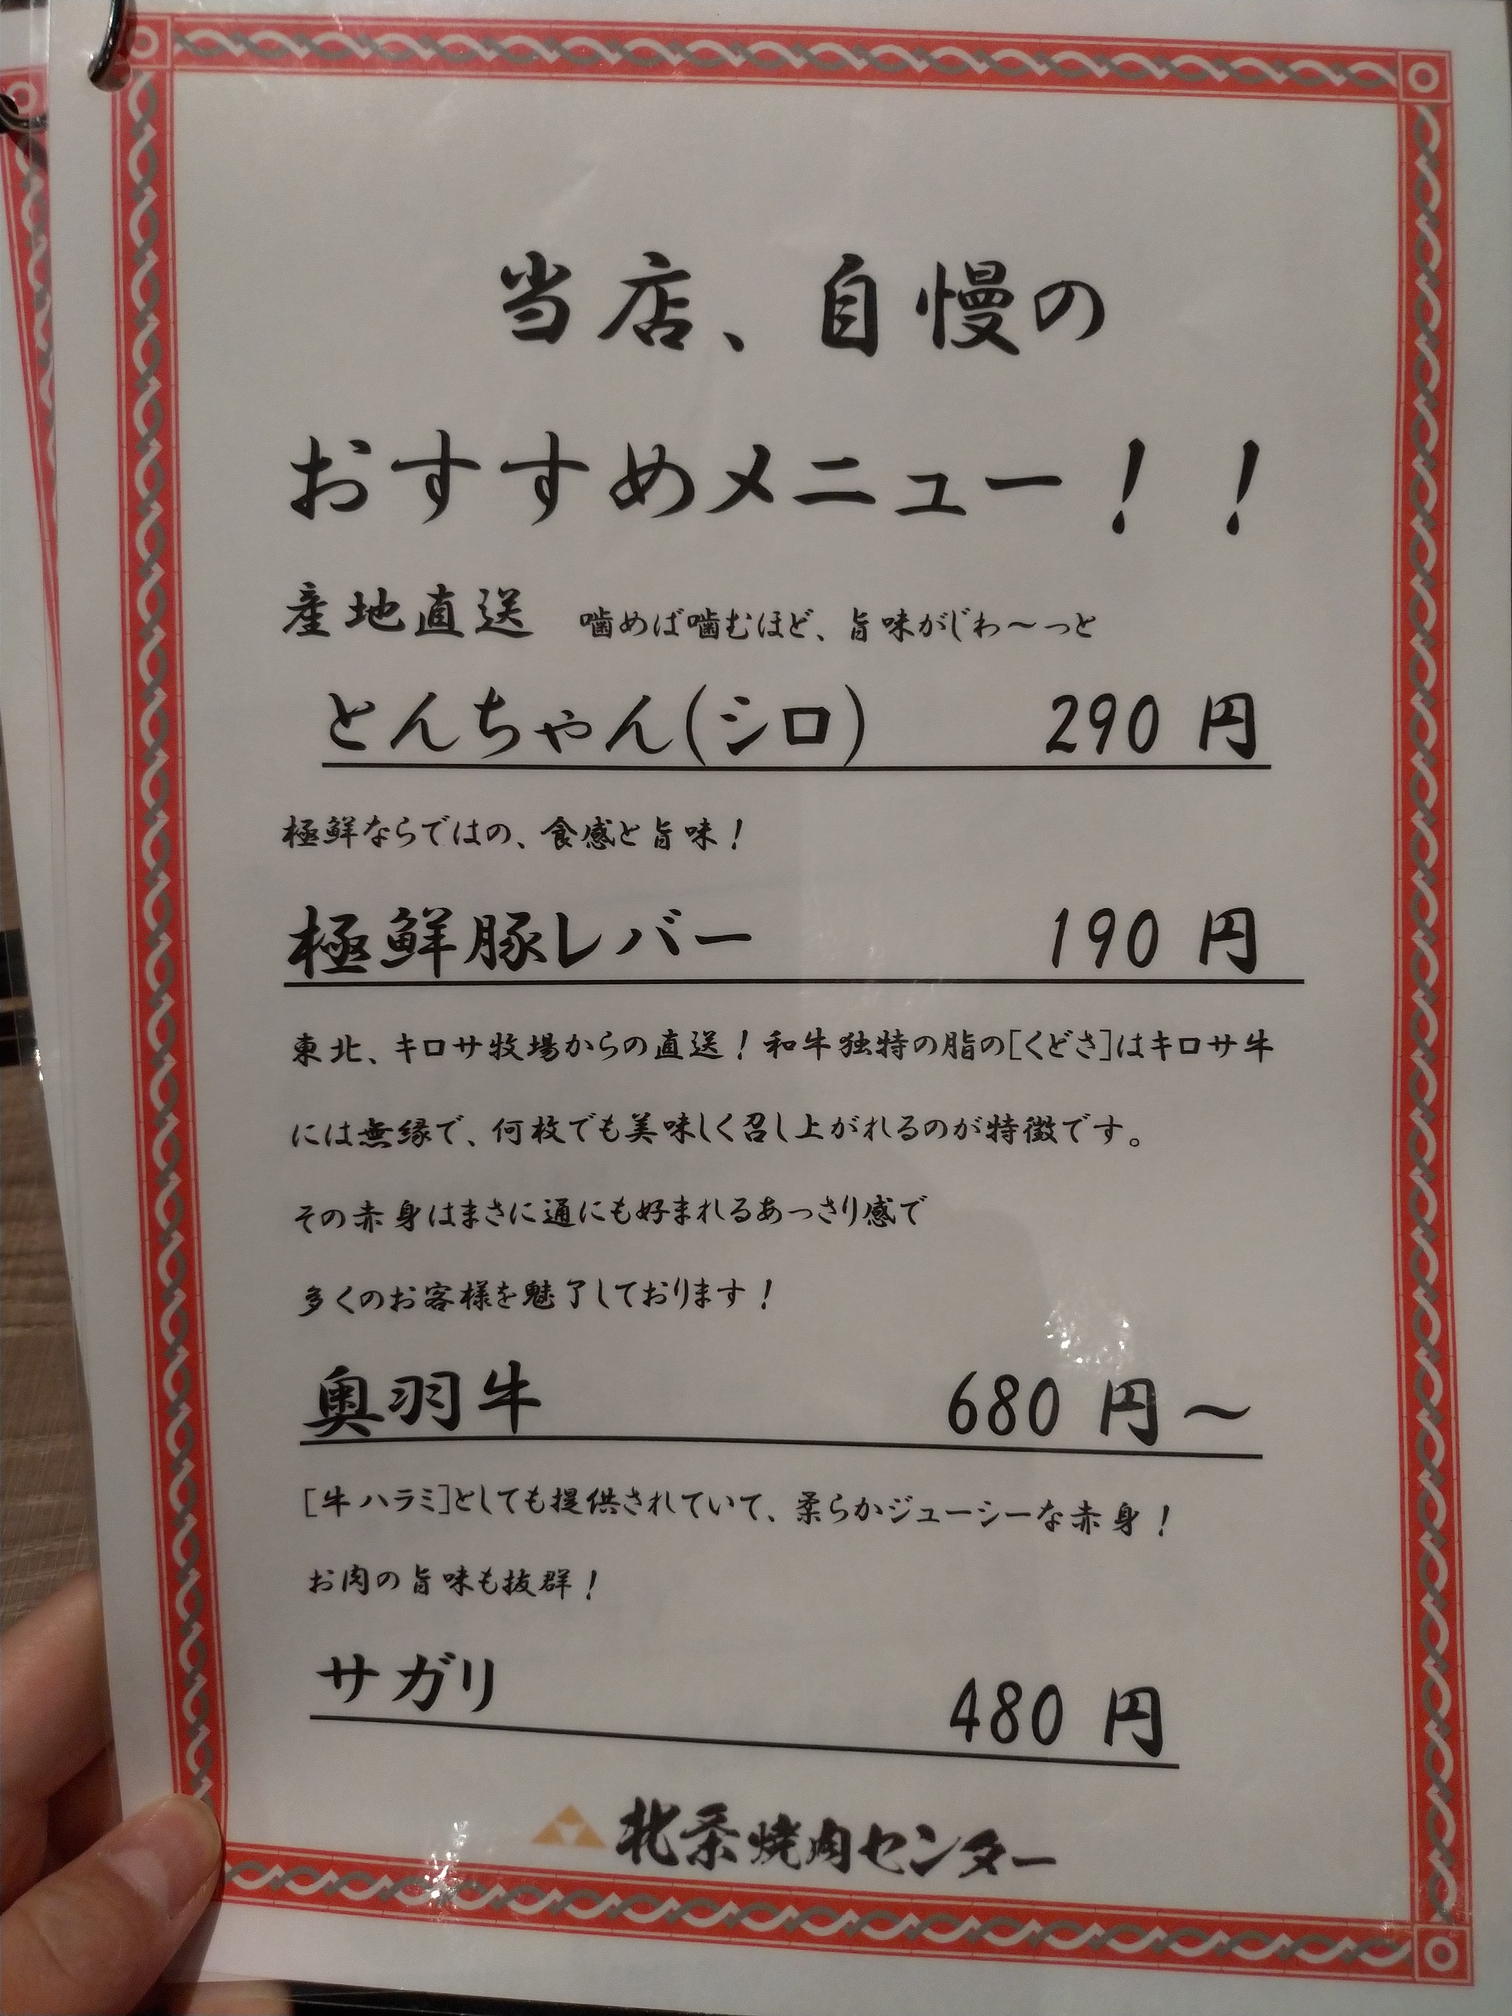 当店、自慢の
おすすめメニュー！！
産地直送 噛めば噛むほど、旨味がじわ～っと
とんちゃん(シロ) 290 円
極鮮ならではの、食感と旨味！
極鮮豚レバー 190 円
東北、キロサ牧場からの直送！和牛独特の脂の[くどさ]はキロサ牛
には無縁で、何枚でも美味しく召し上がれるのが特徴です。
その赤身はまさに通にも好まれるあっさり感で
多くのお客様を魅了しております！
奥羽牛 680 円～
[牛ハラミ]としても提供されていて、柔らかジューシーな赤身！
お肉の旨味も抜群！
サガリ 480 円
北条焼肉センター